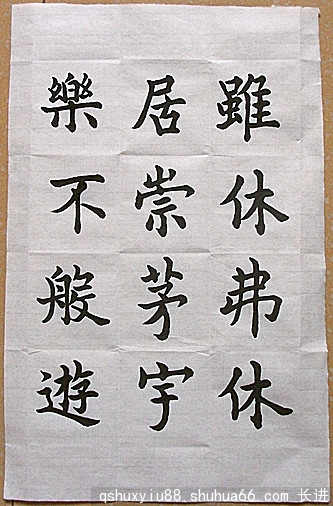 雖休弗休
居崇茅宇
樂不般遊
qshuxyiu88.shuhua66.com 长进